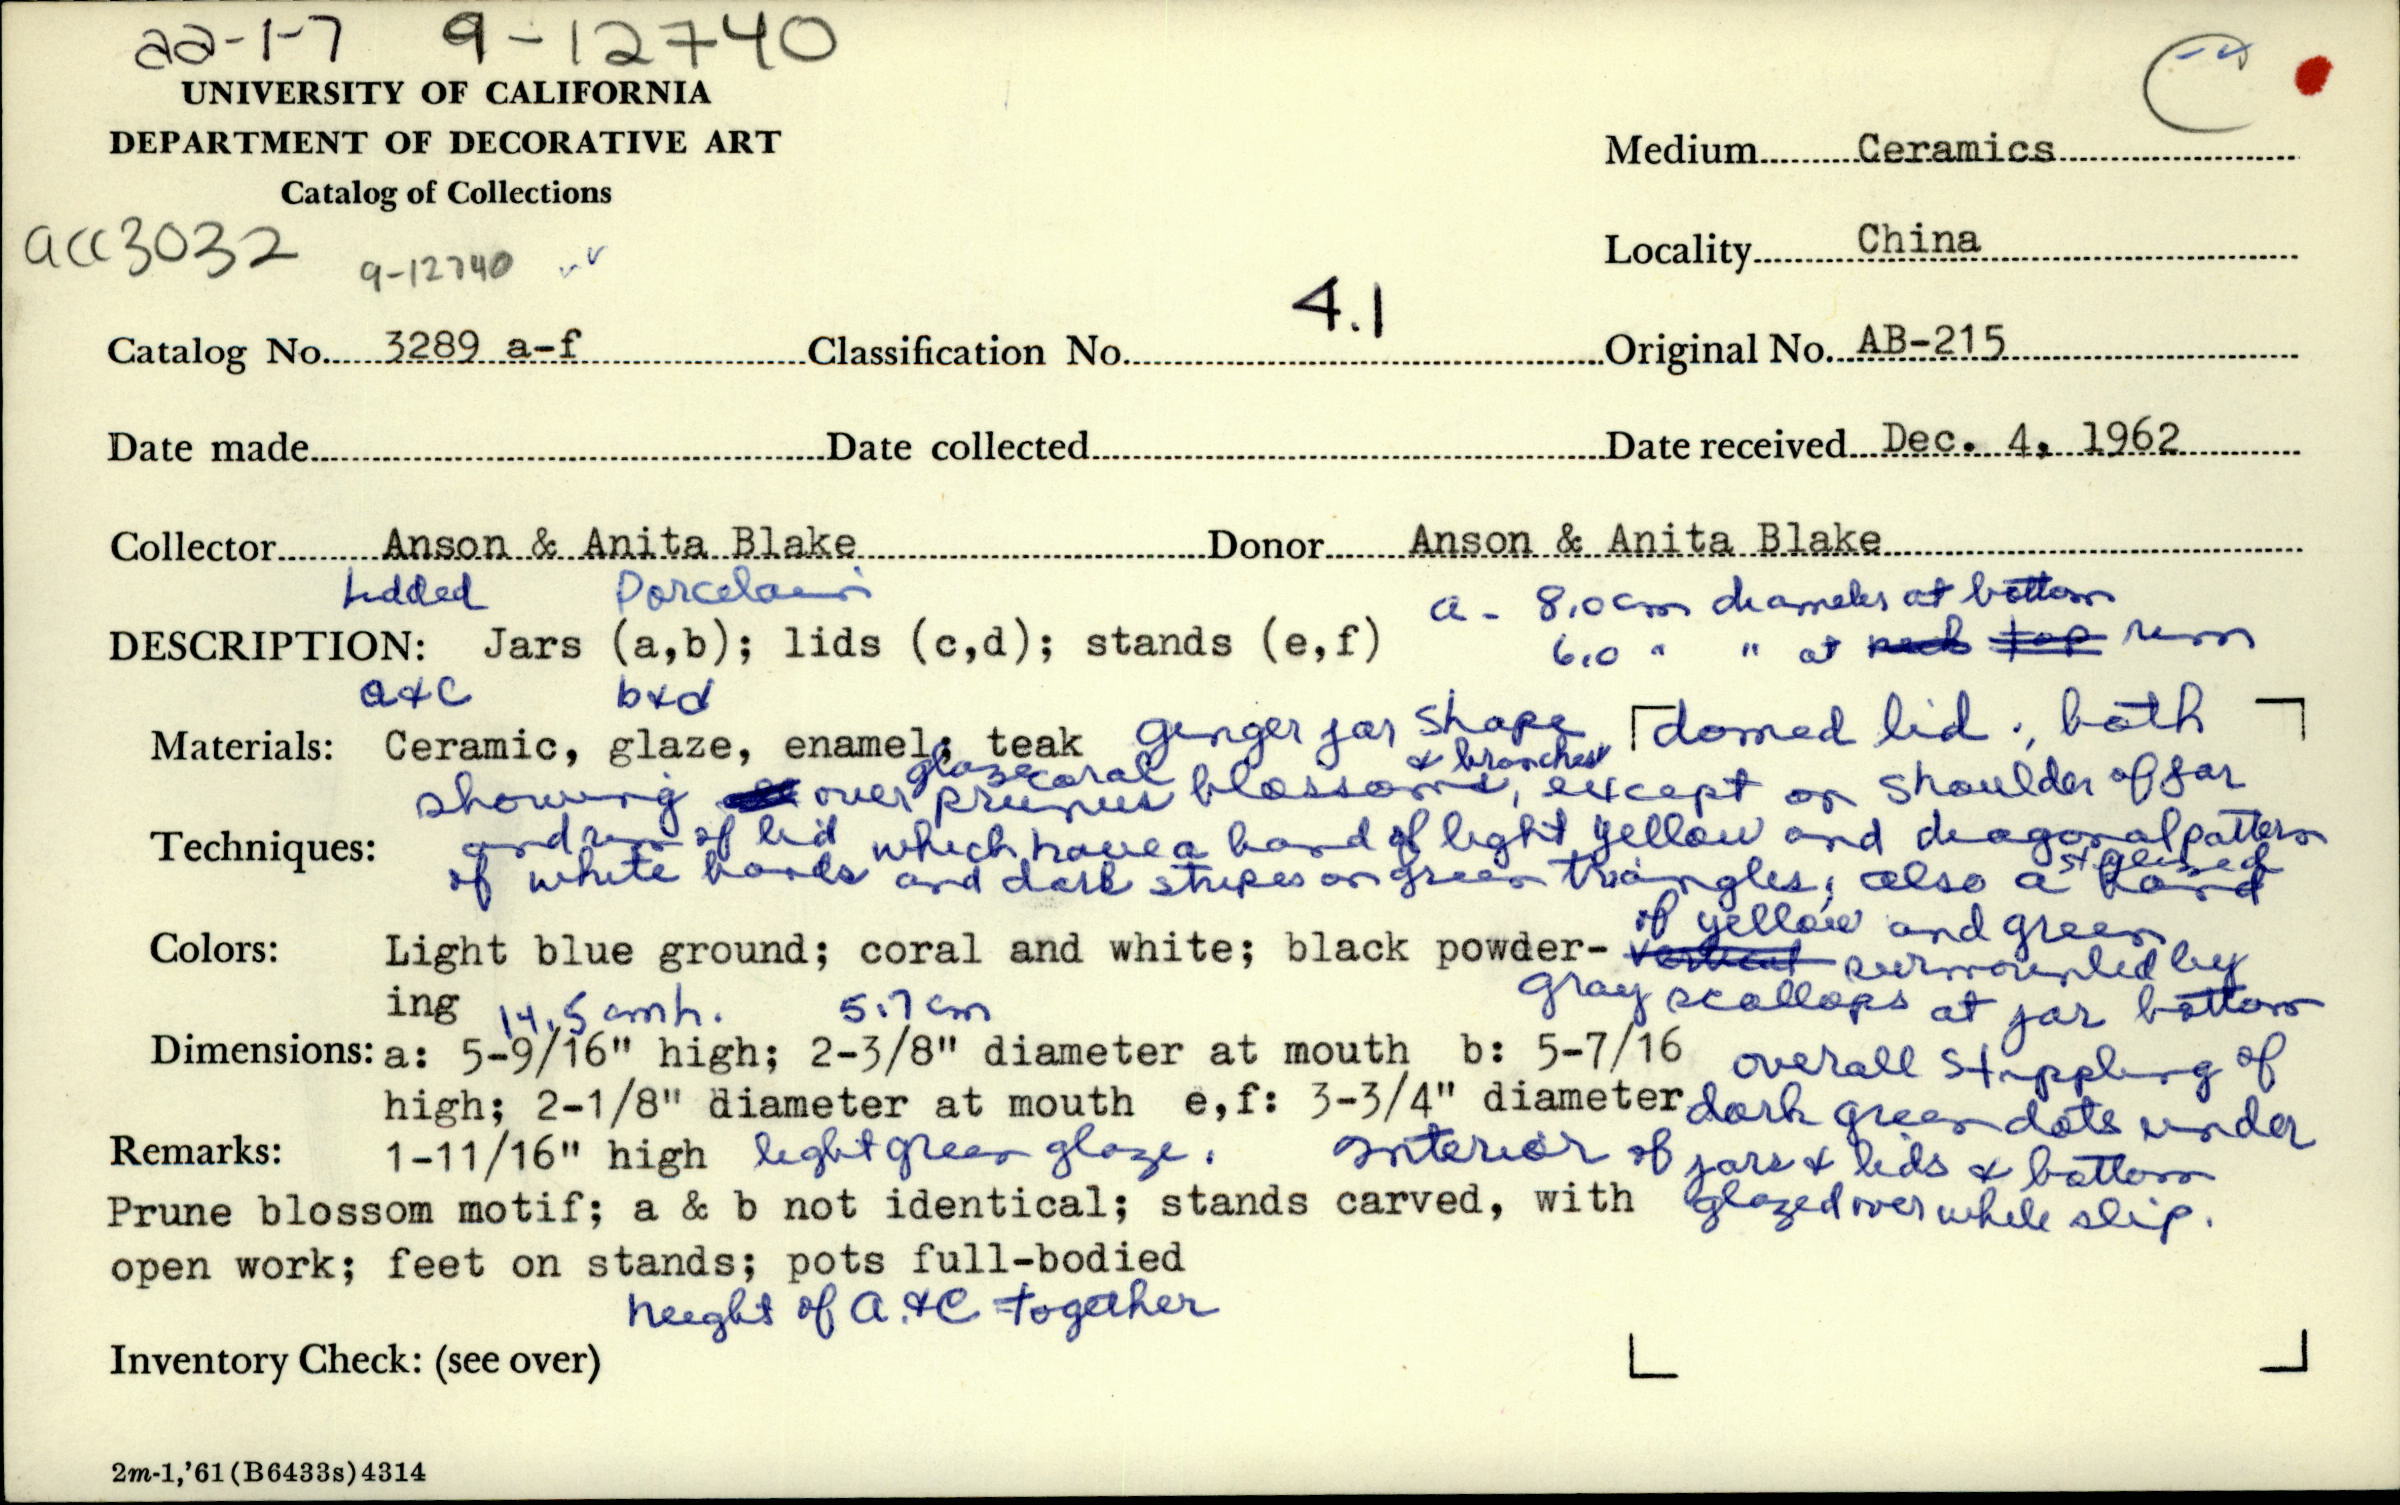 aa-1-7 9-12740
UNIVERSITY OF CALIFORNIA
DEPARTMENT OF DECORATIVE ART
Catalog of Collections
acc3032 9-12740
Medium Ceramics
Locality China
4.1
Catalog No. 3289 a-f Classification No. Original No. AB-215
Date made Date collected Date received Dec. 4, 1962
Collector Anson & Anita Blake Donor Anson & Anita Blake
Lidded Porcelain a - 8.0 cm diameter at bottom
DESCRIPTION: Jars (a,b); lids (c,d); stands (e,f) 6.0 " " at neck top rim
a+c b+d
Materials: Ceramic, glaze, enamel; teak ginger jar shape domed lid ., both
glaze coral & branches
showing over prunus blossoms, except on shoulder of jar
Techniques: and rim of lid which have a band of light yellow and diagonal pattern
of white bands and dark stripes on green triangles; also a band
of yellow and green
Colors: Light blue ground; coral and white; black powder- vertical surmounted by
ing gray scallops at jar bottom
14.5 cm h. 5.7 cm
Dimensions: a: 5-9/16" high; 2-3/8" diameter at mouth b: 5-7/16 overall stippling of
high; 2-1/8" diameter at mouth e,f: 3-3/4" diameter dark green dots under
Remarks: 1-11/16" high light green glaze. Interior of jars & lids & bottom
Prune blossom motif; a & b not identical; stands carved, with glazed over white slip.
open work; feet on stands; pots full-bodied
height of a.+c together
Inventory Check: (see over)
2m-1,'61(B6433s)4314